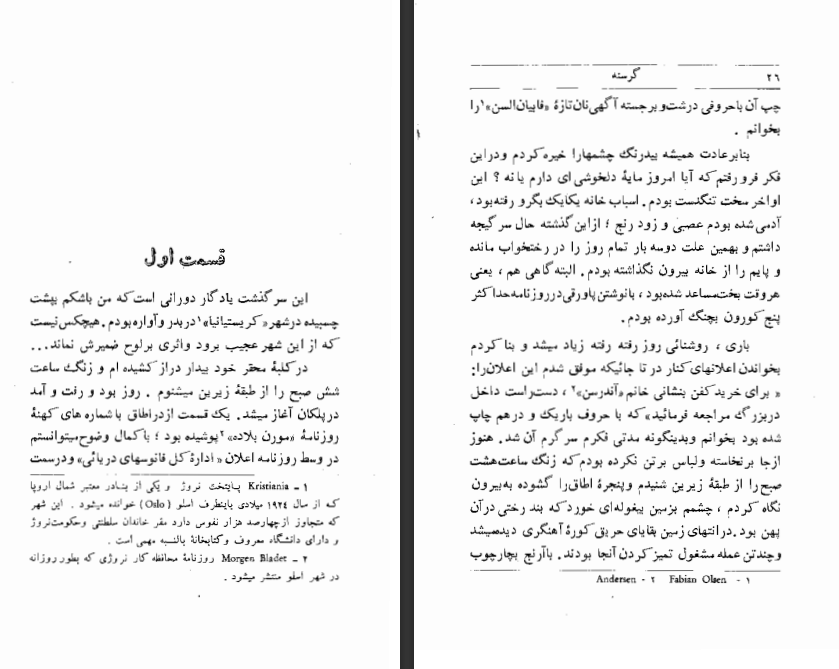 قسمت اول
این سرگذشت یادگار دورانی است که من باشکم بپشت
چسبیده درشهر «کریستیانیا»۱ دربدر و آواره بودم. هیچکس نیست
که از این شهر عجیب برود واثری برلوح ضمیرش نماند...
در کلبهٔ محقر خود بیدار دراز کشیده ام و زنگ ساعت
شش صبح را از طبقهٔ زیرین میشنوم . روز بود و رفت و آمد
درپلکان آغاز میشد. یک قسمت ازدراطاق باشماره های کهنهٔ
روزنامهٔ «مورن بلاده»۲ پوشیده بود ؛ باکمال وضوح میتوانستم
در وسط روزنامه اعلان «ادارهٔ کل فانوسهای دریائی» ودرسمت
۱ ـ Kristiania پایتخت نروژ و یکی از بنادر معتبر شمال اروپا
که از سال ۱۹۲۴ میلادی باینطرف اسلو (Oslo) خوانده میشود . این شهر
که متجاوز ازچهارصد هزار نفوس دارد مقر خاندان سلطنتی وحکومت نروژ
و دارای دانشگاه معروف وکتابخانهٔ بالنسبه مهمی است .
۲ ـ Morgen Bladet روزنامهٔ محافظه کار نروژی که بطور روزانه
در شهر اسلو منتشر میشود .
۲۶ گرسنه
چپ آن باحروفی درشت و برجسته آگهی نان تازهٔ «فابیان السن»۱ را
بخوانم .
بنابرعادت همیشه بیدرنگ چشمهارا خیره کردم ودراین
فکر فرو رفتم که آیا امروز مایهٔ دلخوشی ای دارم یا نه ؟ این
اواخر سخت تنگدست بودم. اسباب خانه یکایک بگرو رفته بود،
آدمی شده بودم عصبی و زود رنج ؛ ازاین گذشته حال سرگیجه
داشتم و بهمین علت دوسه بار تمام روز را در رختخواب مانده
و پایم را از خانه بیرون نگذاشته بودم. البته گاهی هم ، یعنی
هروقت بخت مساعد شده بود ، بانوشتن پاورقی درروزنامه حداکثر
پنج کورون بچنگ آورده بودم .
باری ، روشنائی روز رفته رفته زیاد میشد و بنا کردم
بخواندن اعلانهای کنار در تا جائیکه موفق شدم این اعلان را:
« برای خرید کفن بنشانی خانم «آندرسن»۲ ، دست راست داخل
دربزرگ مراجعه فرمائید» که با حروف باریک و درهم چاپ
شده بود بخوانم وبدینگونه مدتی فکرم سرگرم آن شد. هنوز
ازجا برنخاسته ولباس برتن نکرده بودم که زنگ ساعت هشت
صبح را از طبقهٔ زیرین شنیدم وپنجرهٔ اطاق را گشوده به بیرون
نگاه کردم ، چشمم بزمین بیغوله ای خورد که بند رختی درآن
پهن بود. درانتهای زمین بقایای حریق کورهٔ آهنگری دیده میشد
وچندتن عمله مشغول تمیز کردن آنجا بودند. باآرنج بچارچوب
۱ - Fabian Olsen ۲ - Andersen